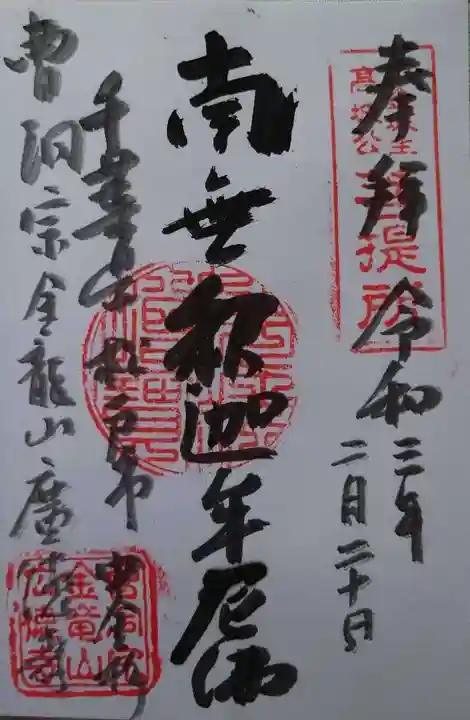 奉拝 令和三年
二月二十日
菩提所
南無釈迦牟尼佛
千葉県松戸市
中金杉
曹洞宗金龍山廣徳寺
曹洞宗
金竜山
広徳寺